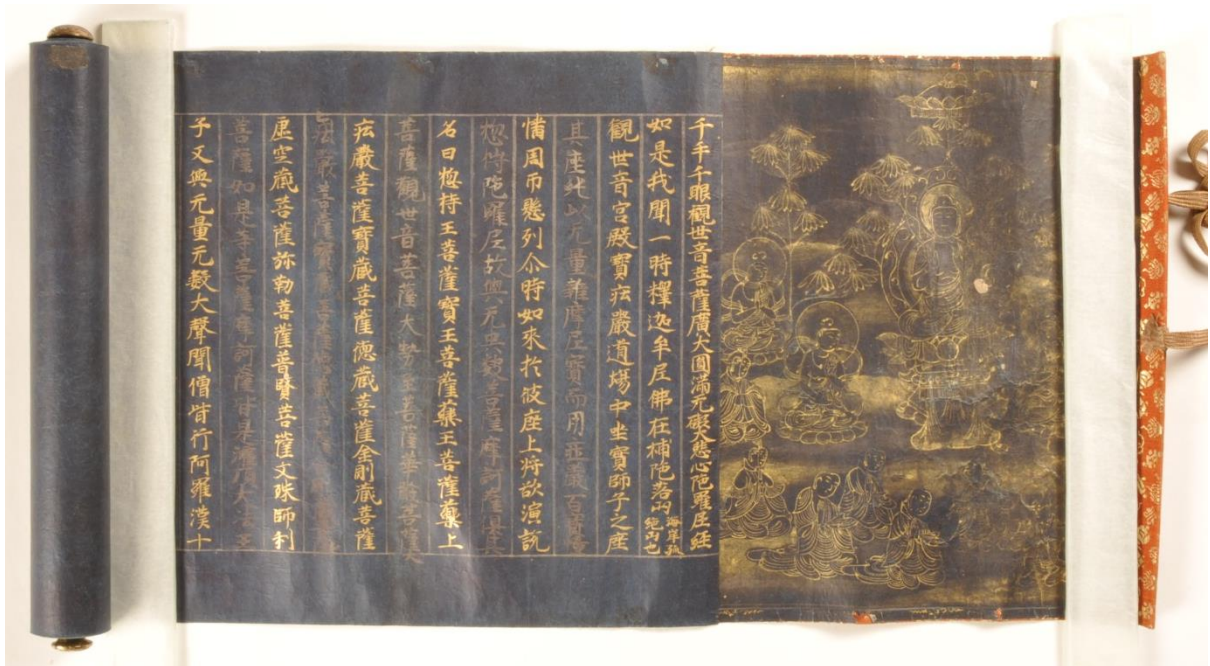 千手千眼觀世音菩薩廣大圓滿无礙大悲心陁羅尼經
如是我聞一時釋迦牟尼佛在補陁落山海岸孤絕山也
觀世音宮殿寶莊嚴道場中坐寶師子之座
其座純以无量雜摩尼寶而用莊嚴百寶幢
幡周帀懸列尒時如來於彼座上將欲演說
惣持陁羅尼故與无央數菩薩摩訶薩俱其
名曰惣持王菩薩寶王菩薩藥王菩薩藥上
菩薩觀世音菩薩大勢至菩薩華嚴菩薩大
莊嚴菩薩寶藏菩薩德藏菩薩金剛藏菩薩
莊嚴菩薩寶藏菩薩德藏菩薩
虛空藏菩薩弥勒菩薩普賢菩薩文殊師利
菩薩如是等菩薩摩訶薩皆是灌頂大法王
子又與无量无數大聲聞僧皆行阿羅漢十